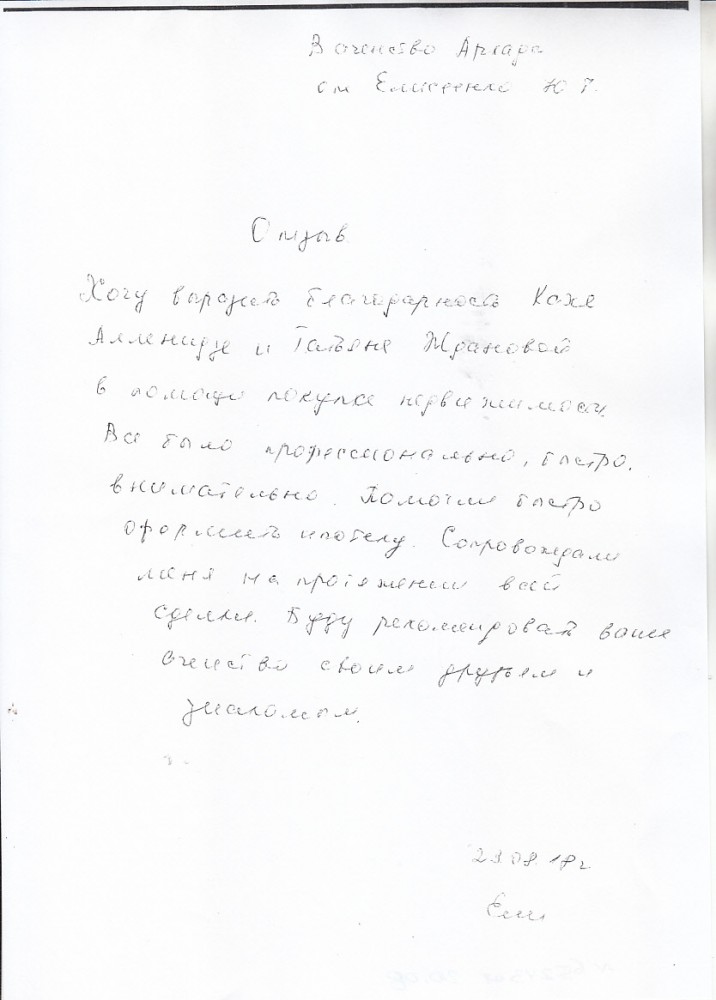 В агенство Аркада
от Елисеенко Ю Г.
Отзыв
Хочу выразить благодарность Кахе
и Татьяне
в помощи покупке недвижимости.
Все было профессионально, быстро,
внимательно. Помогли быстро
оформить ипотеку. Сопровождали
меня на протяжении всей
сделки. Буду рекомендовать ваше
агенство своим друзьям и
знакомым.
29.08.18г